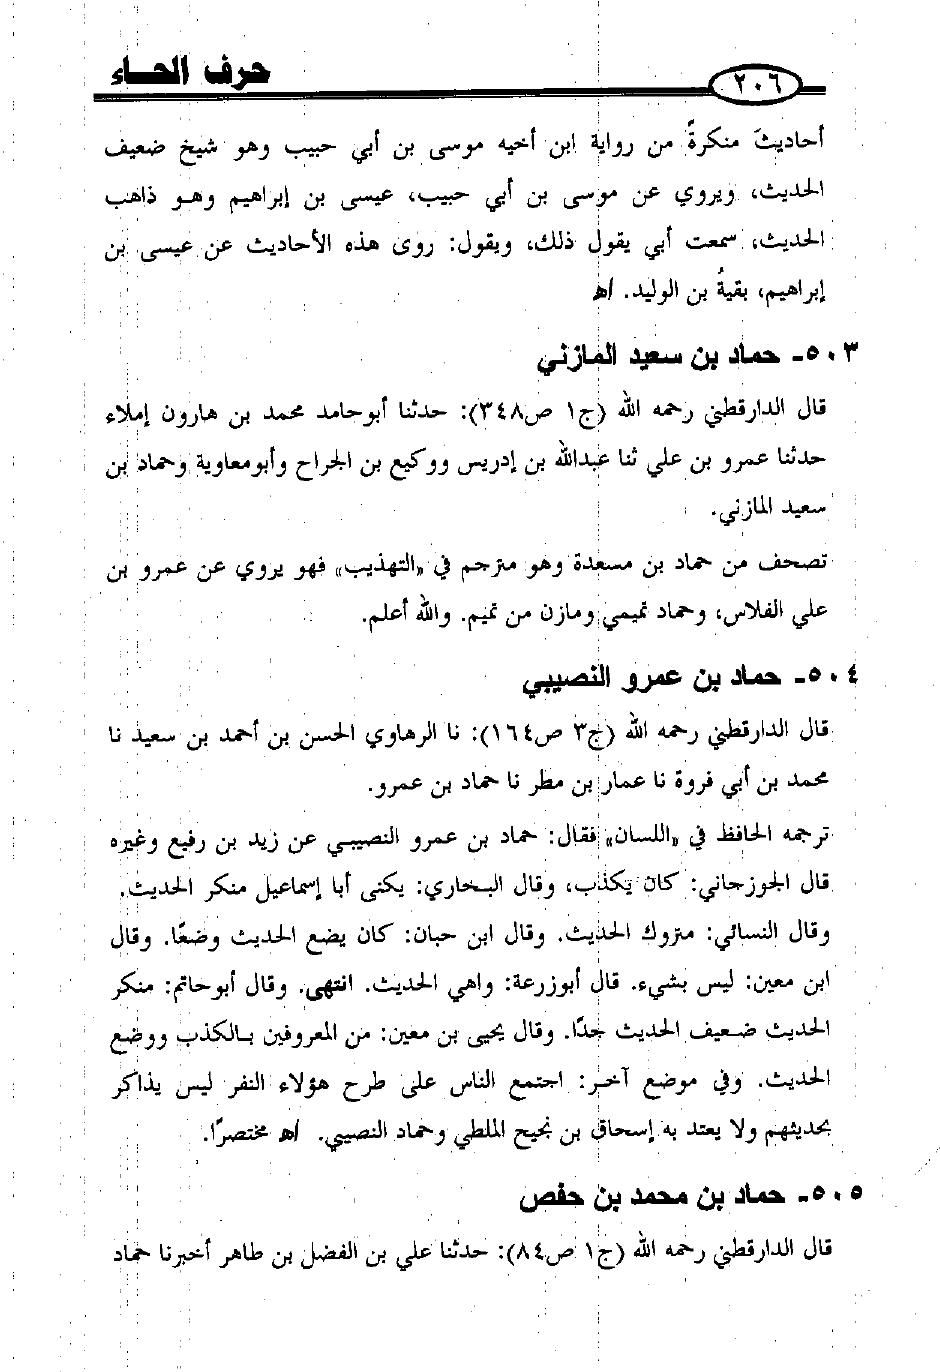 ٢٠٦ حرف الحاء
أحاديثَ منكرةً من رواية ابن أخيه موسى بن أبي حبيب وهو شيخ ضعيف
الحديث، ويروي عن موسى بن أبي حبيب، عيسى بن إبراهيم وهو ذاهب
الحديث، سمعت أبي يقول ذلك، ويقول: روى هذه الأحاديث عن عيسى بن
إبراهيم، بقيةُ بن الوليد. اﻫ
٥٠٣- حماد بن سعيد المازني
قال الدارقطني رحمه الله (ج١ ص٣٤٨): حدثنا أبوحامد محمد بن هارون إملاء
حدثنا عمرو بن علي ثنا عبدالله بن إدريس ووكيع بن الجراح وأبومعاوية وحماد بن
سعيد المازني.
تصحف من حماد بن مسعدة وهو مترجم في «التهذيب» فهو يروي عن عمرو بن
علي الفلاس، وحماد تميمي ومازن من تميم. والله أعلم.
٥٠٤- حماد بن عمرو النصيبي
قال الدارقطني رحمه الله (ج٣ ص١٦٤): نا الرهاوي الحسن بن أحمد بن سعيد نا
محمد بن أبي فروة نا عمار بن مطر نا حماد بن عمرو.
ترجمه الحافظ في «اللسان» فقال: حماد بن عمرو النصيبي عن زيد بن رفيع وغيره
قال الجوزجاني: كان يكذب، وقال البخاري: يكنى أبا إسماعيل منكر الحديث.
وقال النسائي: متروك الحديث. وقال ابن حبان: كان يضع الحديث وضعًا. وقال
ابن معين: ليس بشيء. قال أبوزرعة: واهي الحديث. انتهى. وقال أبوحاتم: منكر
الحديث ضعيف الحديث جدًا. وقال يحيى بن معين: من المعروفين بالكذب ووضع
الحديث. وفي موضع آخر: اجتمع الناس على طرح هؤلاء النفر ليس يذاكر
بحديثهم ولا يعتد به إسحاق بن نجيح الملطي وحماد النصيبي. اﻫ مختصرًا.
٥٠٥- حماد بن محمد بن حفص
قال الدارقطني رحمه الله (ج١ ص٨٤): حدثنا علي بن الفضل بن طاهر أخبرنا حماد